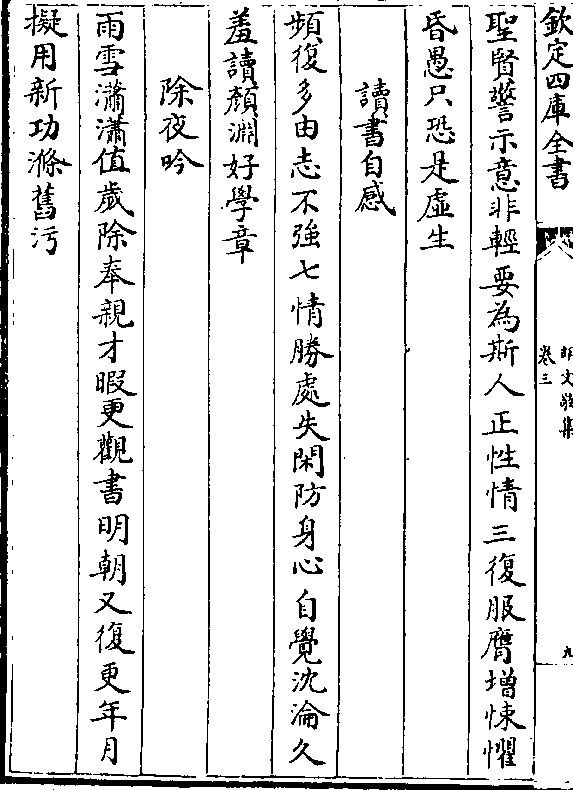 欽定四庫全書
胡文敬集
卷三
九
聖賢警示意非輕要為斯人正性情三復服膺增悚懼
昏愚只恐是虛生
讀書自感
頻復多由志不強七情勝處失閑防身心自覺沈淪久
羞讀顏淵好學章
除夜吟
雨雪瀟瀟值歲除奉親才暇更觀書明朝又復更年月
擬用新功滌舊污